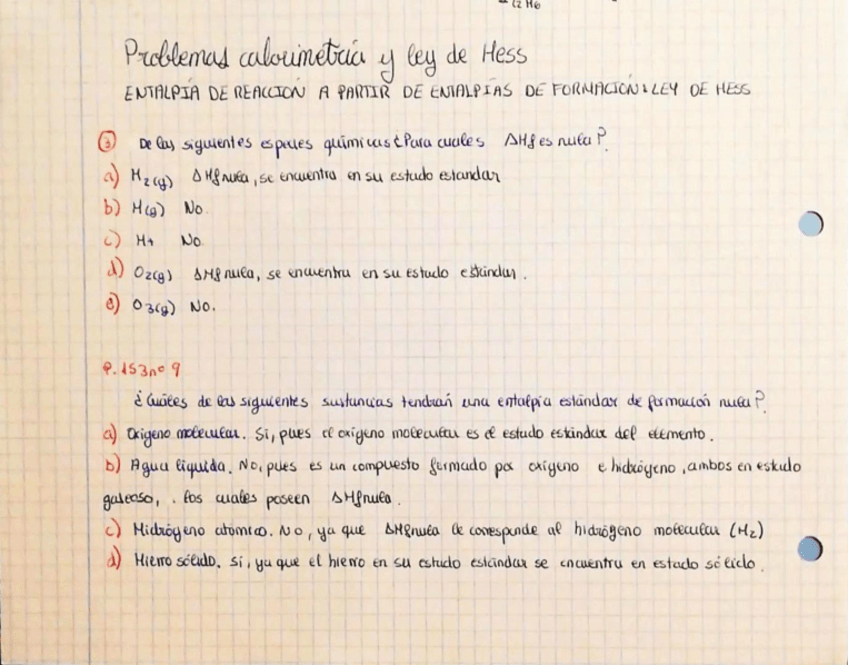 C2H6
Problemas calorimetría y ley de Hess
ENTALPÍA DE REACCIÓN A PARTIR DE ENTALPÍAS DE FORMACIÓN & LEY DE HESS
3 De las siguientes especies químicas ¿Para cuales ΔHf es nula?
a) H2(g) ΔHf nula, se encuentra en su estado estandar
b) H(g) No.
c) H+ No
d) O2(g) ΔHf nula, se encuentra en su estado estándar.
e) O3(g) No.
P. 153 nº 9
¿Cuáles de las siguientes sustancias tendrán una entalpía estándar de formación nula?
a) Oxígeno molecular. Sí, pues el oxígeno molecular es el estado estándar del elemento.
b) Agua líquida. No, pues es un compuesto formado por oxígeno e hidrógeno, ambos en estado
gaseoso, los cuales poseen ΔHf nula.
c) Hidrógeno atómico. No, ya que ΔHf nula le corresponde al hidrógeno molecular (H2)
d) Hierro sólido. Sí, ya que el hierro en su estado estándar se encuentra en estado sólido.